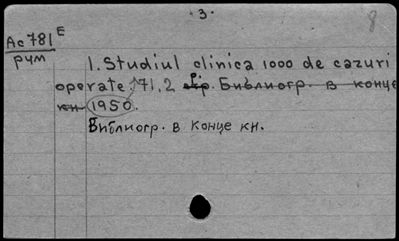 · 3 ·
8
Ac 781 E
рум
1. Studiul clinica 1000 de cazuri
operate. 71, 2 Библиогр. в конце
кн. 1950.
Библиогр. в конце кн.